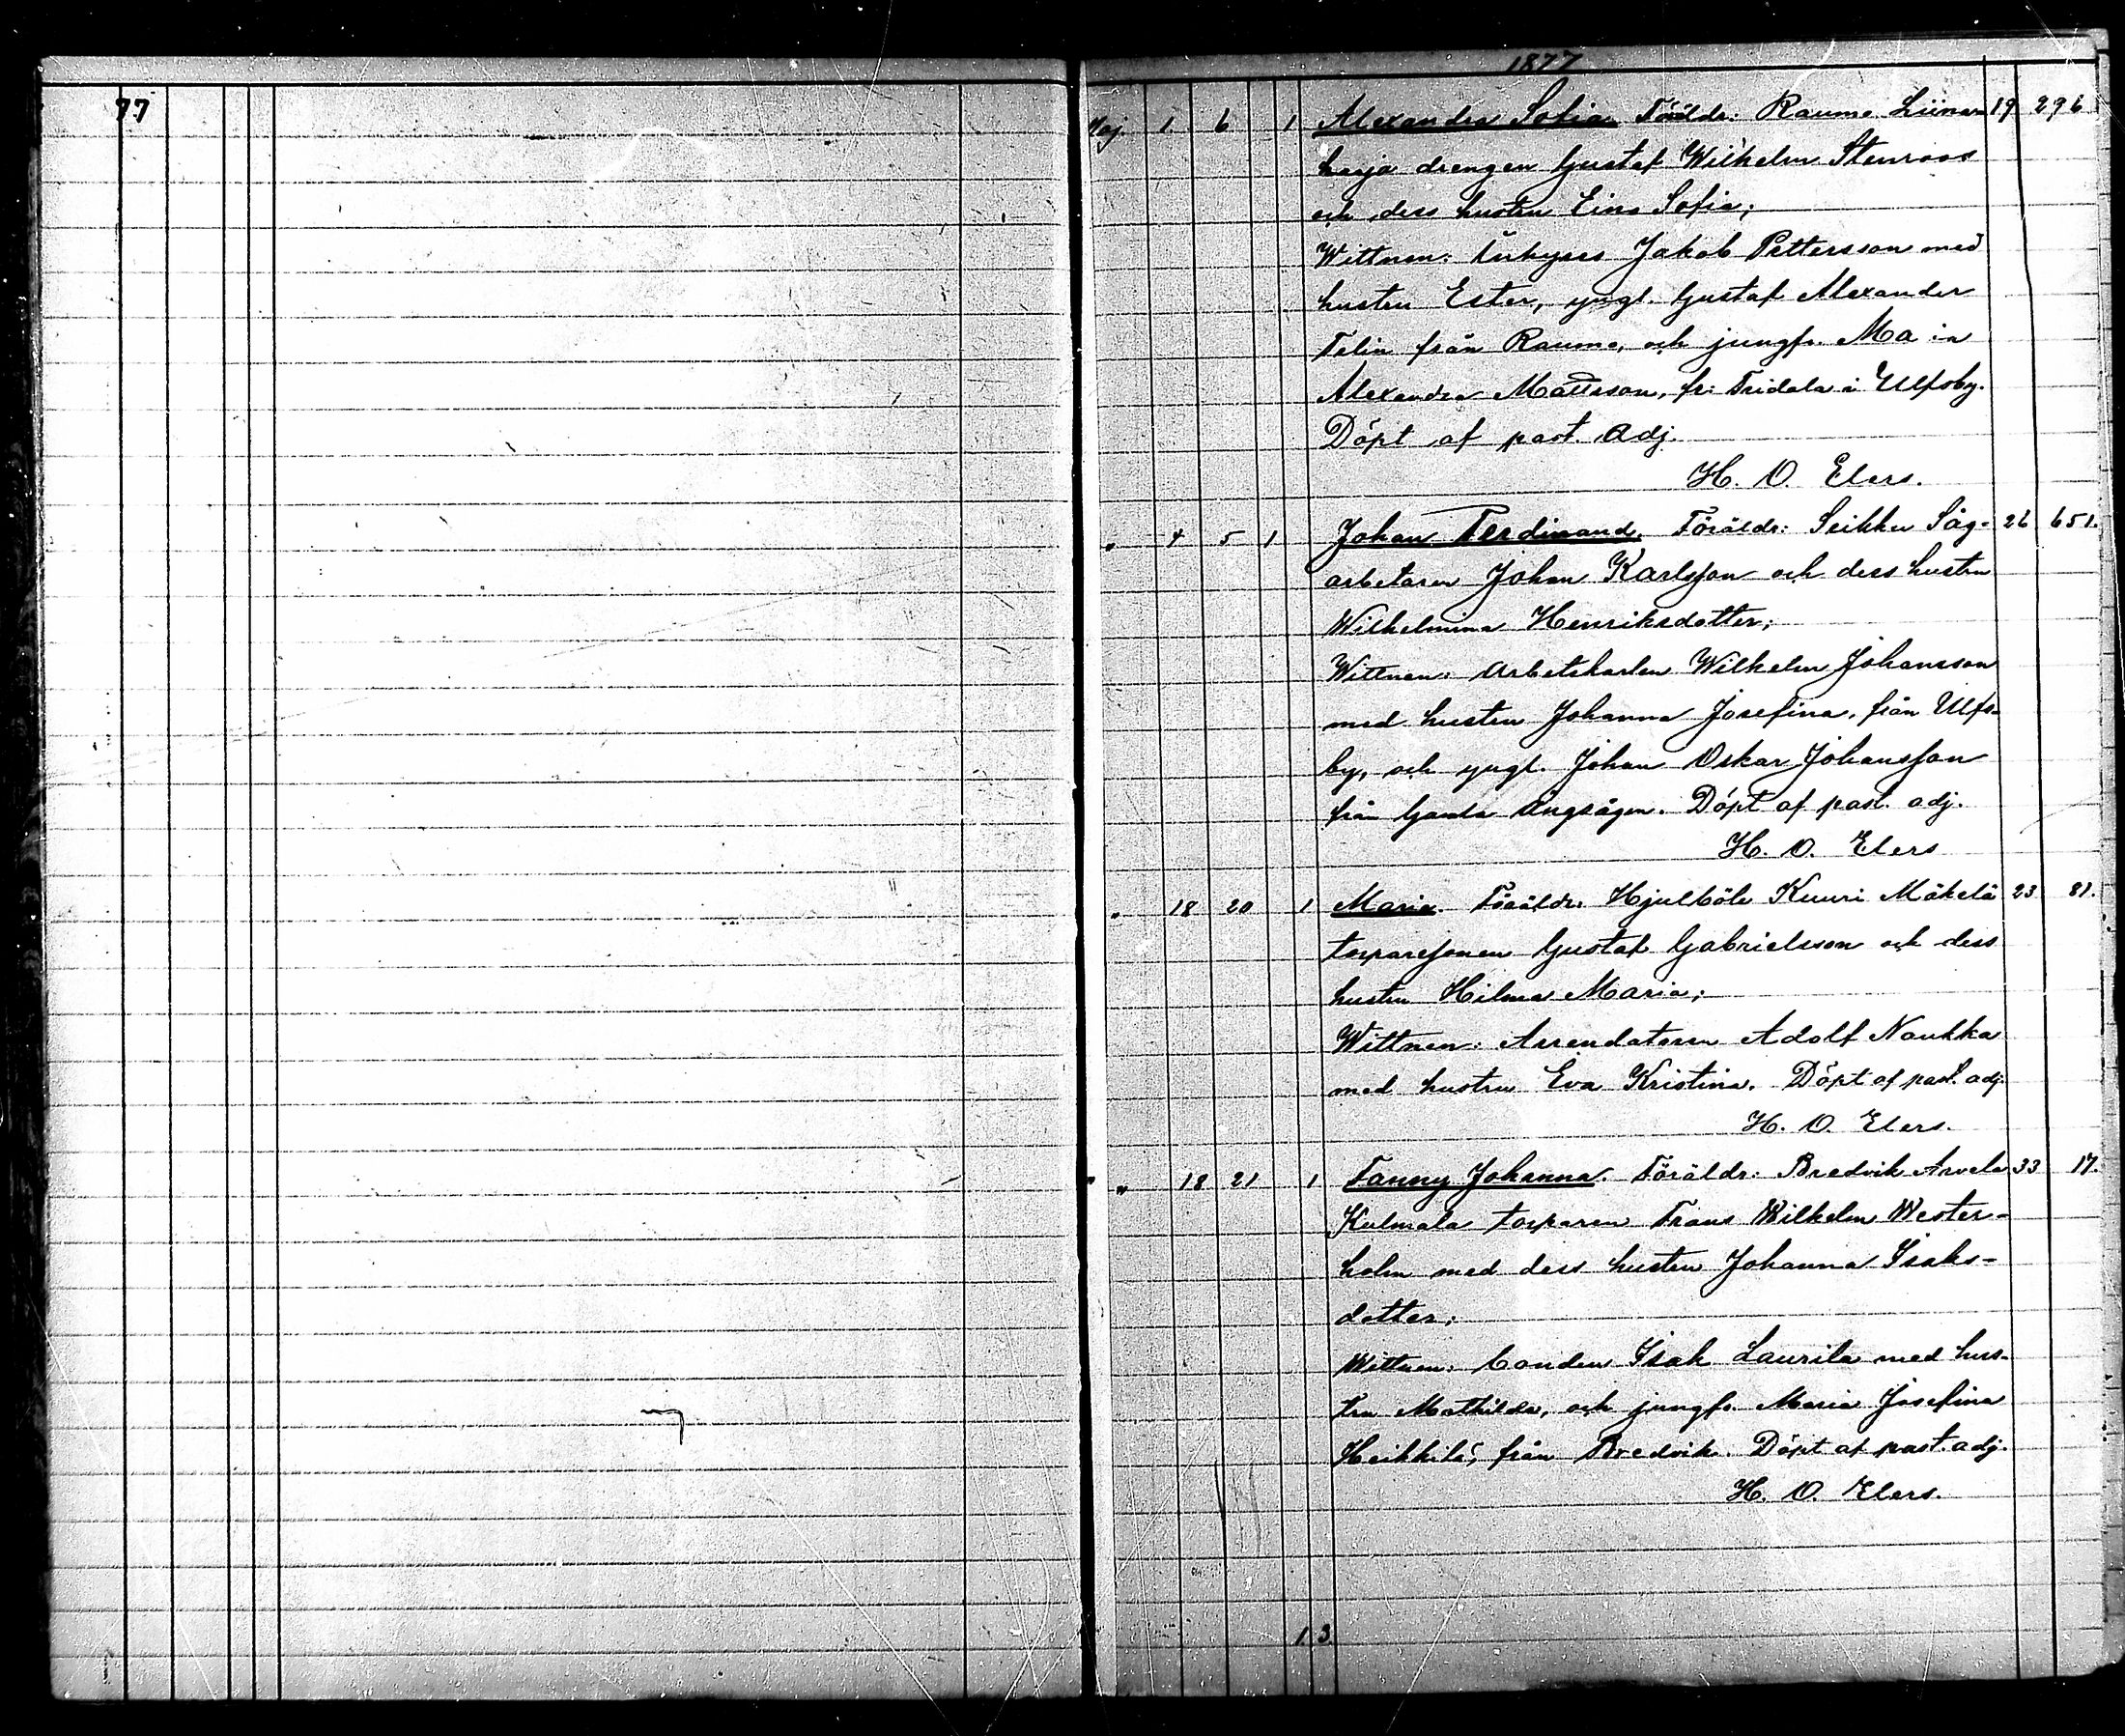 77
1877
Maj. 1 6 1 Alexandra Sofia Föräldr: Raumo Liinan- 19 296
harja drengen Gustaf Wilhelm Stenroos
och dess hustru Eina Sofia;
Wittnen: Inhyses Jakob Pettersson med
hustru Ester, yngl. Gustaf Alexander
Felin från Raumo, och jungfr. Ma ia
Alexandra Mattsson, fr: Fridala i Ulfsby.
Döpt af past. Adj.
H. O. Elers.
" 4 5 1 Johan Ferdinand. Föräldr: Seikku Såg- 26 651.
arbetaren Johan Karlsson och dess hustru
Wilhelmina Henriksdotter;
Wittnen: Arbetskarlen Wilhelm Johansson
med hustru Johanna Josefina, från Ulfs-
by, och yngl. Johan Oskar Johansson
från Gamla Ångsågen. Döpt af past. adj.
H. O. Elers
" 18 20 1 Maria. Föräldr. Hjulböle Kuuri Mäkelä 23 81.
torparesonen Gustaf Gabrielsson och dess
hustru Hilma Maria;
Wittnen: Arrendatorn Adolf Naukka
med hustru Eva Kristina. Döpt af past. adj.
H. O. Elers.
" " 18 21 1 Fanny Johanna. Föräldr: Bredvik Arvela 33 17.
Kulmala torparen Frans Wilhelm Wester-
holm med dess hustru Johanna Isaks-
dotter;
Wittnen: bonden Isak Laurila med hus-
tru Mathilda, och jungfr. Maria Josefina
Heikkilä, från Bredvik. Döpt af past. adj.
H. O. Elers.
1 3